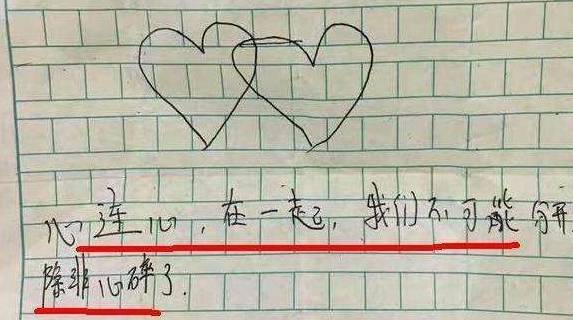 心连心,在一起,我们不可能解
除非心碎了.